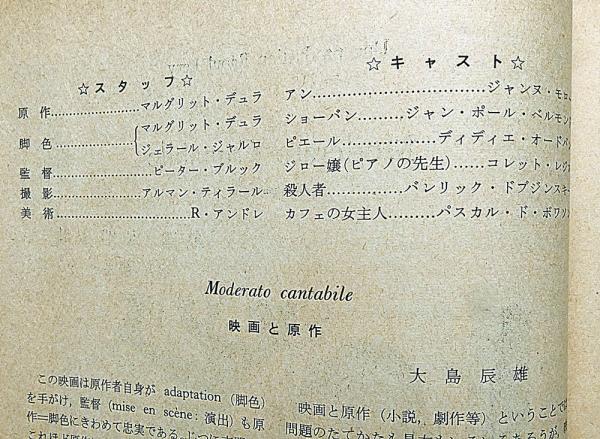 ☆スタッフ☆
原作……………マルグリット・デュラ
脚色……………マルグリット・デュラ
ジェラール・ジャルロ
監督……………ピーター・ブルック
撮影……………アルマン・ティラール
美術……………R・アンドレ
☆キャスト☆
アン……………ジャンヌ・モロ
ショーバン………ジャン・ポール・ベルモン
ピエール…………ディディエ・オードパ
ジロー嬢(ピアノの先生)……コレット・レジ
殺人者………バンリック・ドブジンスキ
カフェの女主人………パスカル・ド・ボワソ
Moderato cantabile
映画と原作
大島辰雄
この映画は原作者自身が adaptation(脚色)
を手がけ,監督(mise en scène:演出)も原
作=脚色にきわめて忠実である。じつに
これほど原
映画と原作(小説,劇作等)ということで
問題のたてかたも